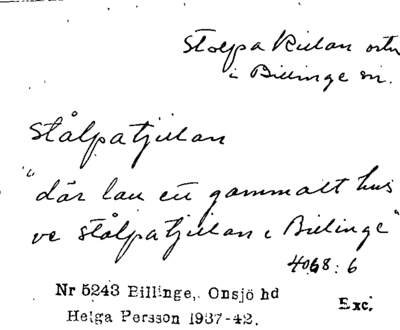 Stolpa Kielan ortn
i Billinge sn.
Stålpatjielan
"där lau ett gammalt hus
ve stålpatjielan i Bielinge"
4068:6
Nr 5243 Billinge, Onsjö hd
Helga Persson 1937-42.
Exc.